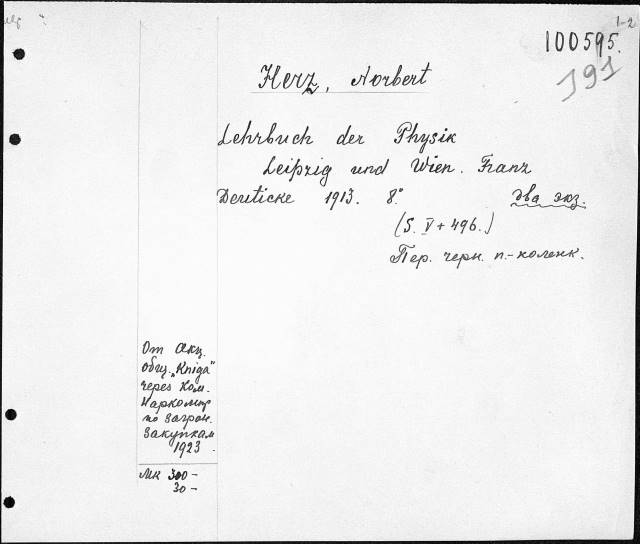 1-2
100595.
191
Herz, Norbert
Lehrbuch der Physik
Leipzig und Wien. Franz
Deuticke 1913. 8° два экз.
(S. V + 496.)
Пер. черн. п.-коленк.
От Акц.
общ. "Kniga"
через Ком.
по загран.
закупкам
1923.
Мк 300-
30-